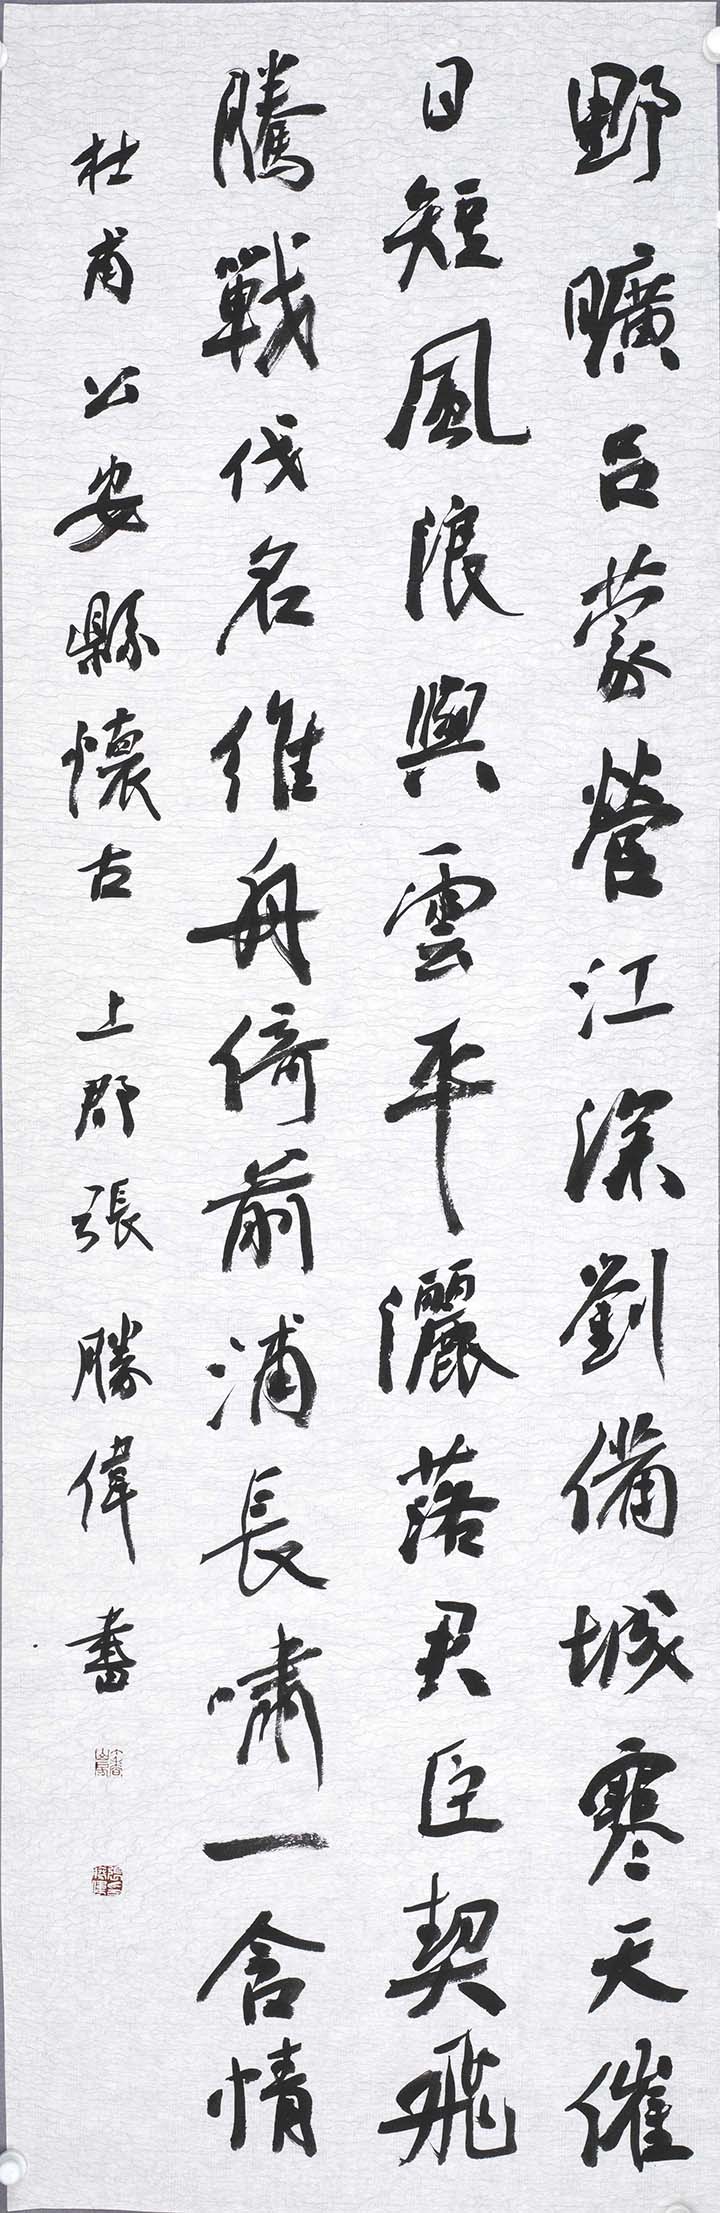 野曠吕蒙營江深劉備城寒天催
日短風浪與雲平灑落君臣契飛
騰戰伐名維舟倚前浦長嘯一含情
杜甫公安縣懷古 上郡張勝偉書